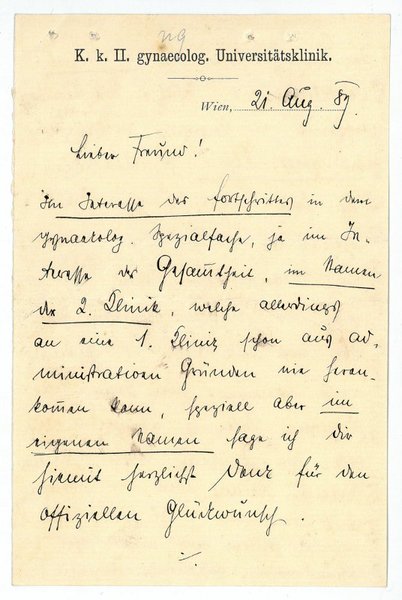 K. k. II. gynaecolog. Universitätsklinik.
Wien, 21. Aug. 89.
Lieber Freund!
Im Interesse des Fortschrittes in dem
gynaekolog. Spezialfache, ja im In-
teresse der Gesamtheit, im Namen
der 2. Klinik, welche allerdings
an eine 1. Klinik schon aus ad-
ministrativen Gründen nie heran-
kommen kann, speziell aber im
eigenen Namen sage ich dir
hiemit herzlichst Dank für den
offiziellen Glückwunsch.